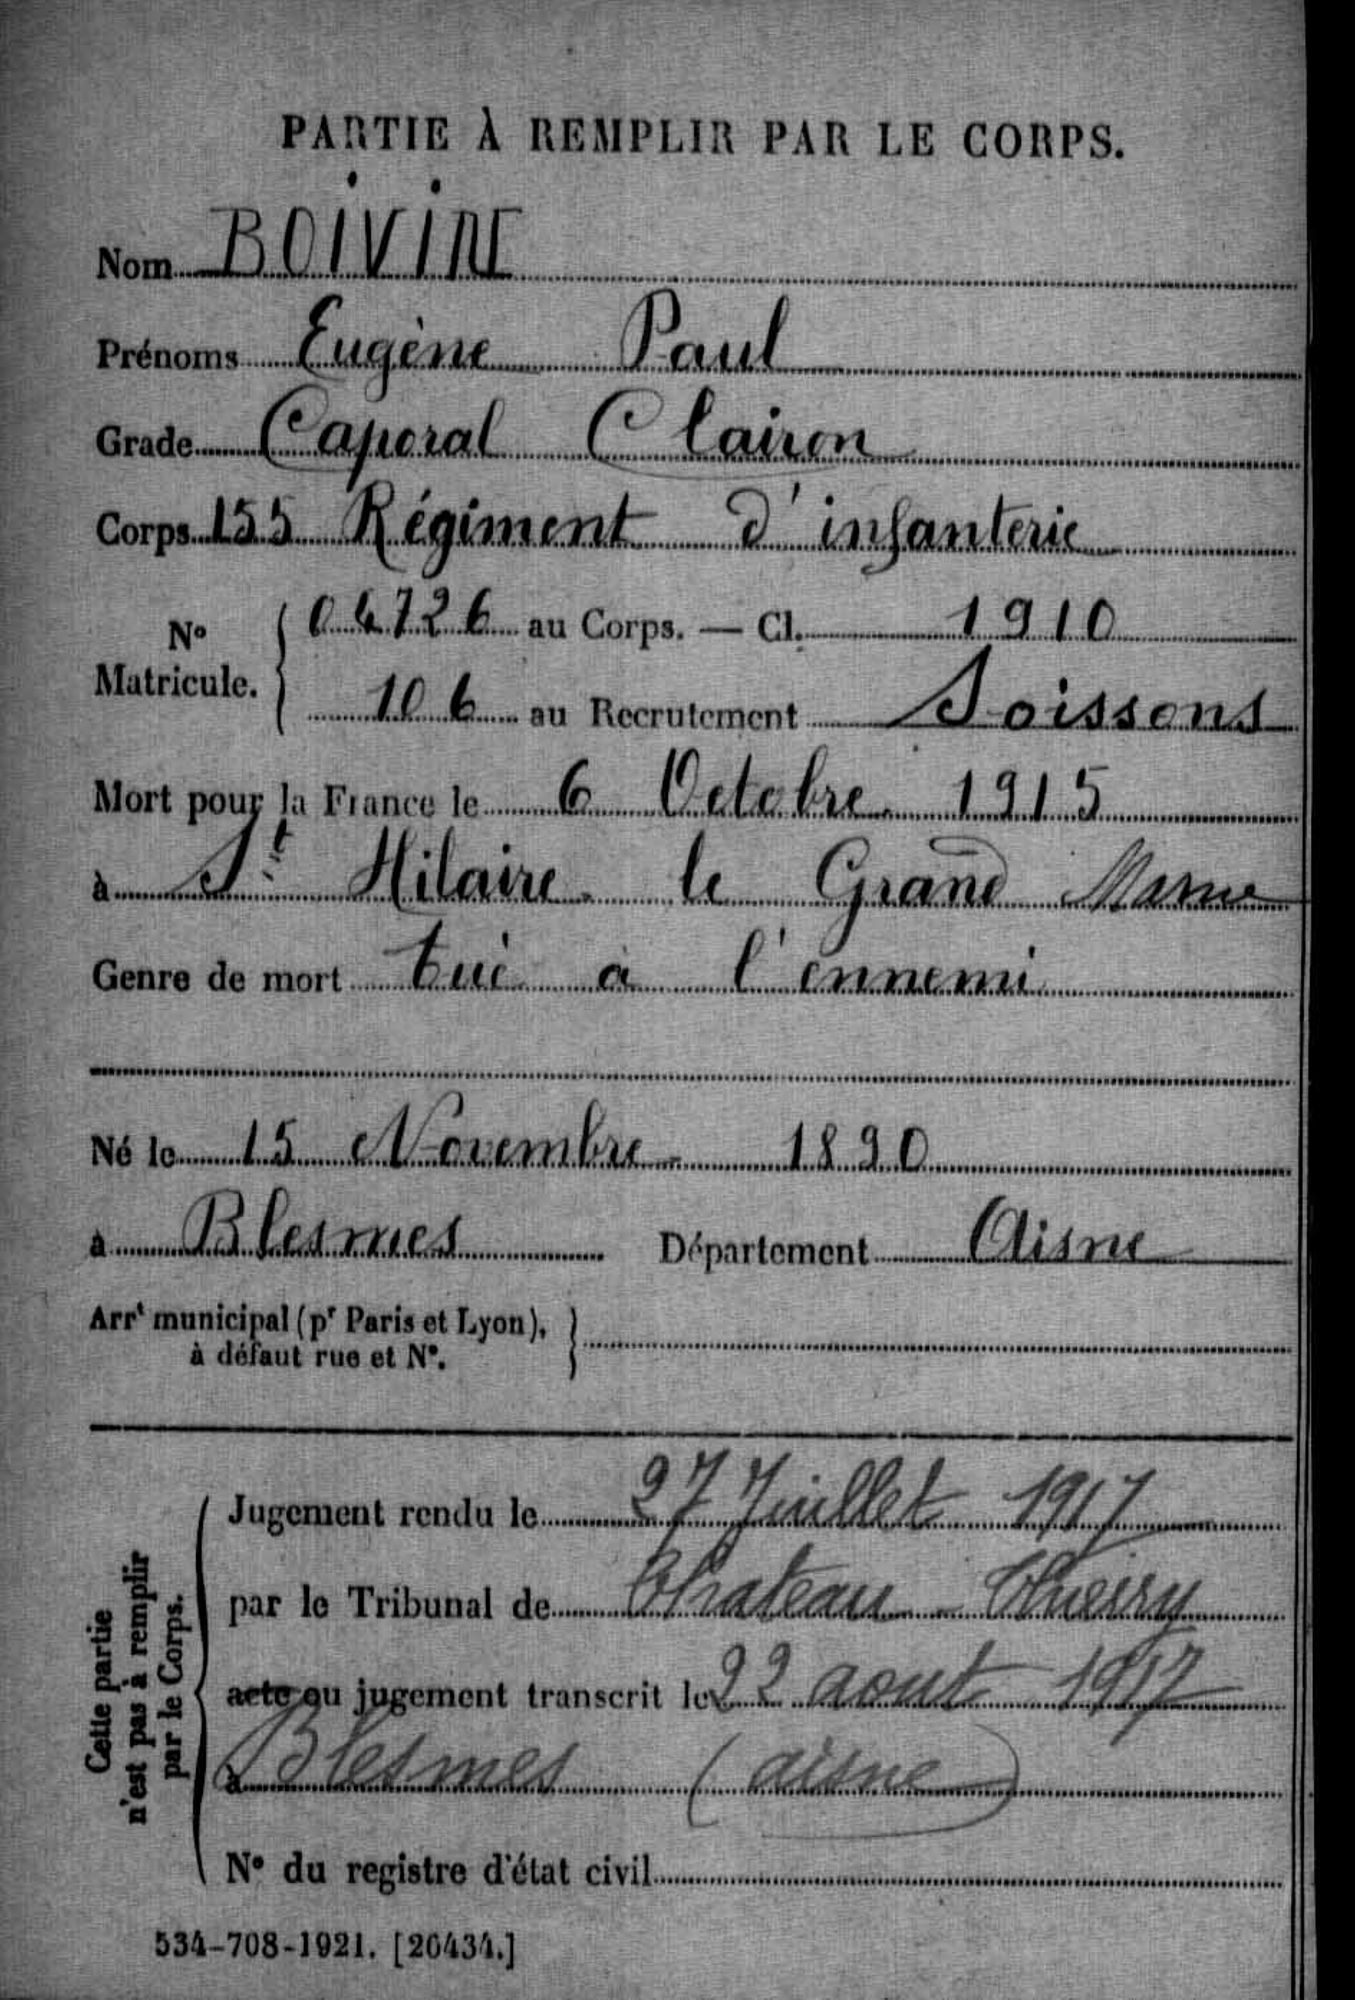 PARTIE À REMPLIR PAR LE CORPS.
Nom BOIVINE
Prénoms Eugène Paul
Grade Caporal Clairon
Corps 155 Régiment d'infanterie
N° Matricule. 04726 au Corps. — Cl. 1910
106 au Recrutement Soissons
Mort pour la France le 6 Octobre 1915
à St Hilaire le Grand Marne
Genre de mort tué à l'ennemi
Né le 15 Novembre 1890
à Blesmes Département Aisne
Arrt municipal (pr Paris et Lyon),
à défaut rue et N°.
Cette partie
n'est pas à remplir
par le Corps.
Jugement rendu le 27 Juillet 1917
par le Tribunal de Chateau-Thierry
acte ou jugement transcrit le 22 aout 1917
à Blesmes (aisne)
N° du registre d'état civil
534-708-1921. [20434.]